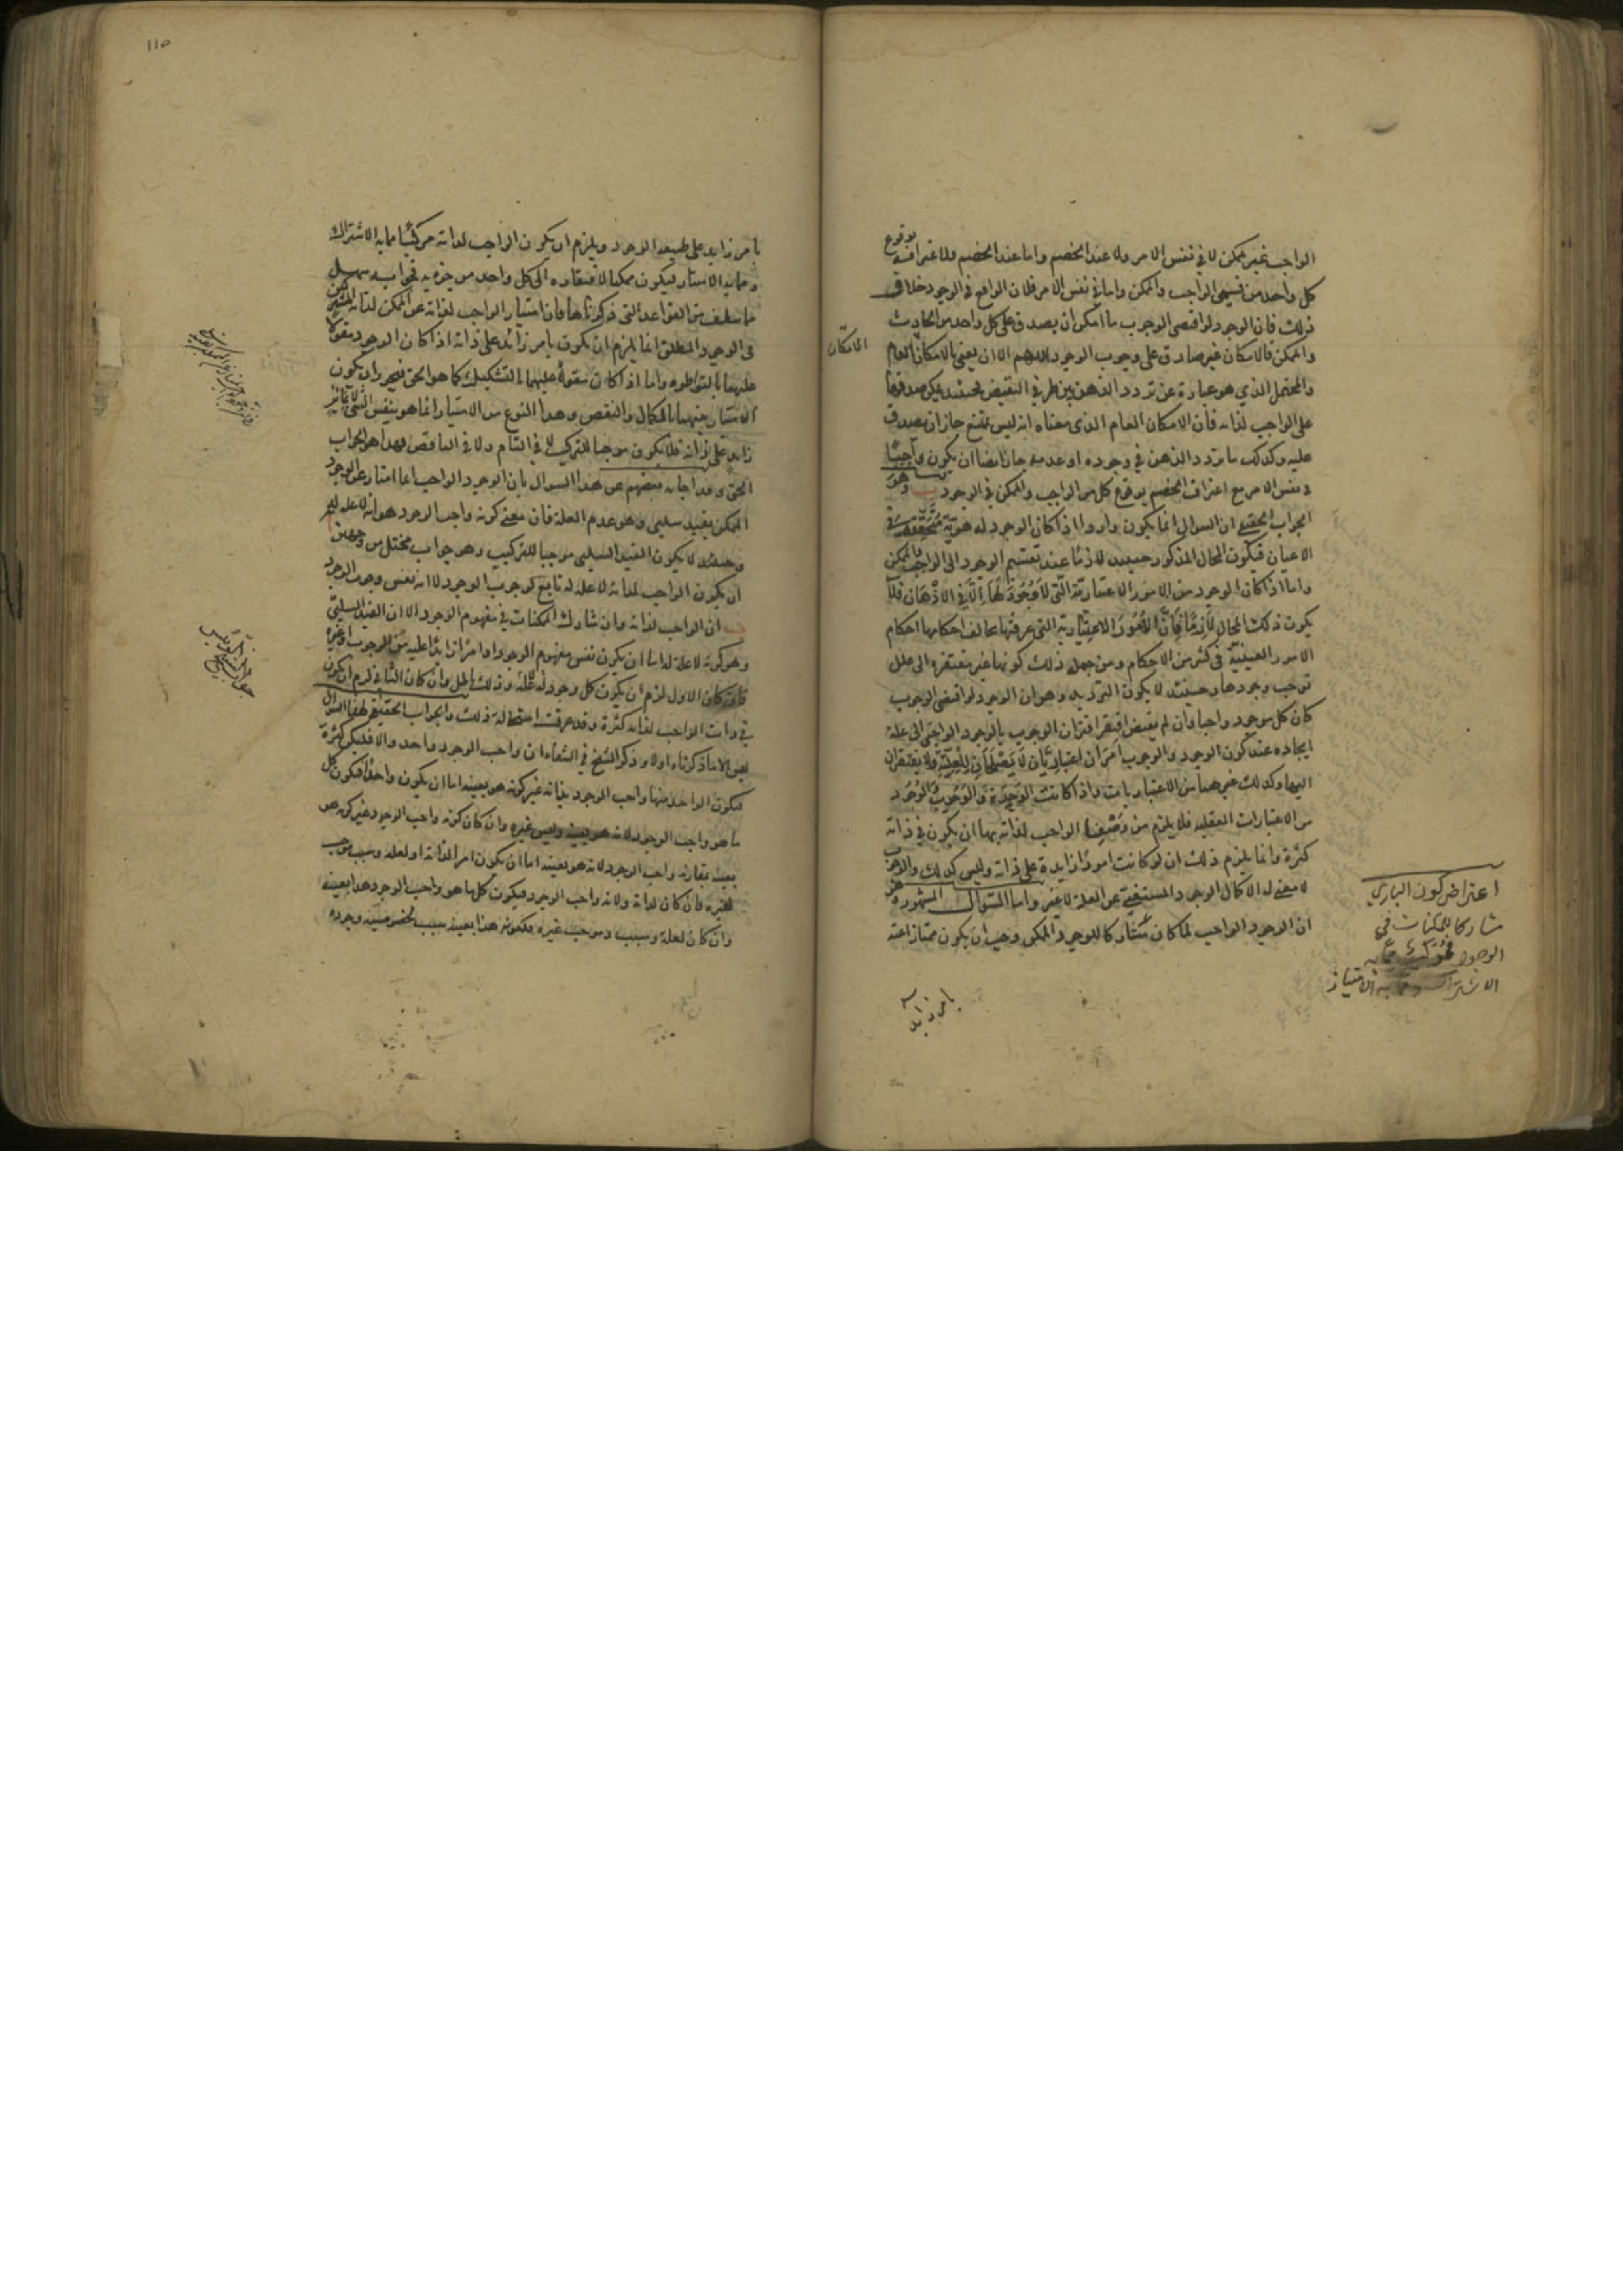 الواجب غير ممكن لا في نفس الامر ولا عند الخصم واما عند الخصم فلاعترافه بوقوع
كل واحد من قسيمى الواجب والممكن واما في نفس الامر فلان الواقع في الوجود خلاف
ذلك فان الوجود لو اقتضى الوجوب ما امكن ان يصدق على كل واحد من الحادث
والممكن فالامكان غير صادق على وجوب الوجود اللهم الا ان يعنى بالامكان العام
والمحتمل الذي هو عبارة عن تردد الذهن بين طرفي النقيض فحينئذ يمكن صدقهما
على الواجب لذاته فان الامكان العام الذى معناه انه ليس بممتنع جاز ان يصدق
عليه وكذلك ما تردد الذهن في وجوده او عدمه جاز ايضا ان يكون واجبًا
في نفس الامر مع اعتراف الخصم بوقوع كل من الواجب والممكن في الوجود
الجواب الحقيقي ان السوال انما يكون واردا اذا كان الوجود له هوية متحققة في
الاعيان فيكون المحال المذكور حينئذ لازمًا عند تقسيم الوجود الى الواجب والممكن
واما اذا كان الوجود من الامور الاعتبارية التى لا وجود لها الا في الاذهان فلا
يكون ذلك المحال لازمًا فان الامور الاعتبارية التى عرفتها يخالف احكامها احكام
الامور العينية في كثير من الاحكام ومن جملة ذلك كونها غير مفتقرة الى علل
توجب وجودها وحينئذ لا يكون الترديد وهو ان الوجود لو اقتضى الوجوب
كان كل موجود واجبا وان لم يقتض افتقر اقتران الوجوب بالوجود الواجبى الى علة
ايجاده عند كون الوجود والوجوب امران اعتباريان لا يصلحان للعلية ولا يفتقران
اليها وكذلك غيرهما من الاعتباريات واذا كانت الوحدة والوجوب والوجود
من الاعتبارات العقلية فلا يلزم من وصفنا الواجب لذاته بها ان يكون في ذاته
كثرة وانما يلزم ذلك ان لو كانت امورًا زايدة على ذاته وليس كذلك والوجوب
لا معنى له الا كمال الوجود المستغنى عن العلة لا غير واما السوال المشهور وهو
ان الوجود الواجب لما كان مشاركا للوجود الممكن وجب ان يكون ممتازا عنه
الامكان
اعتراض كون الباري
مشاركا للممكنات في
الوجود
الاشتراك وما به الامتياز
بامر زايد
١١٥
بامر زايد على طبيعة الوجود ويلزم ان يكون الواجب لذاته مركبًا مما به الاشتراك
ومما به الامتياز فيكون ممكنا لافتقاره الى كل واحد من جزءيه فجوابه سهل
مما سلف من القواعد التى ذكرناها فان امتياز الواجب لذاته عن الممكن لذاته
فى الوجود المطلق انما يلزم ان يكون بامر زائد على ذاته اذا كان الوجود مقولا
عليهما بالتواطوء واما اذا كان مقولا عليهما بالتشكيك كما هو الحق فيجوز ان يكون
الامتياز بينهما بالكمال والنقص وهذا النوع من الامتياز انما هو بنفس الشى لا بامر
زايد على ذاته فلا يكون موجبا للتركيب لا في التام ولا في الناقص فهذا هو الجواب
الحق وقد اجاب بعضهم عن هذا السوال بان الوجود الواجب انما امتاز عن الوجود
الممكن بقيد سلبى وهو عدم العلة فان معنى كونه واجب الوجود هو انه لا علة له
وحينئذ لا يكون القيد السلبى موجبا للتركيب وهو جواب مختل من وجهين
ان يكون الواجب لذاته لا علة له تابع لوجوب الوجود لا انه نفس وجوب الوجود
ان الواجب لذاته وان شارك الممكنات في مفهوم الوجود الا ان القيد السلبى
وهو كونه لا علة له اما ان يكون نفس مفهوم الوجود او امرًا زايدًا عليه من الوجوب او غيره
فان كان الاول لزم ان يكون كل وجود لا علة له وذلك باطل وان كان الثاني لزم ان يكون
في ذات الواجب لذاته كثرة وقد عرفت استحالة ذلك والجواب الحقيقي لهذا السوال
ليس الا ما ذكرناه اولا وذكر الشيخ في الشفاء ان واجب الوجود واحد والا فليكن كثرة
فيكون الواحد منها واجب الوجود بذاته غير كونه هو بعينه اما ان يكون واحدًا فيكون كل
ما هو واجب الوجود لانه هو بعينه وليس غيره وان كان كونه واجب الوجود غير كونه هو
بعينه فمقارنه واجب الوجود لانه هو بعينه اما ان يكون امرا لذاته او لعلة وسبب موجب
لغيره فان كان لذاته ولانه واجب الوجود فيكون كلما هو واجب الوجود هذا بعينه
وان كان لعلة وسبب وموجب غيره فلكونه هذا بعينه سبب لخصوصية وجوده